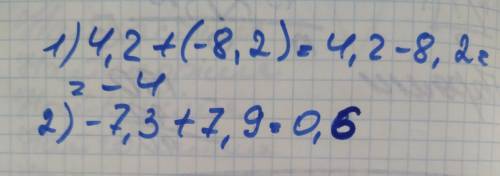 1) 4,2 + (-8, 2) = 4, 2 - 8, 2 =
= - 4
2) - 7,3 + 7, 9 = 0, 6